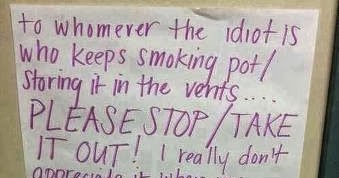 to whomever the idiot is
who keeps smoking pot/
storing it in the vents....
PLEASE STOP/TAKE
IT OUT! I really don't